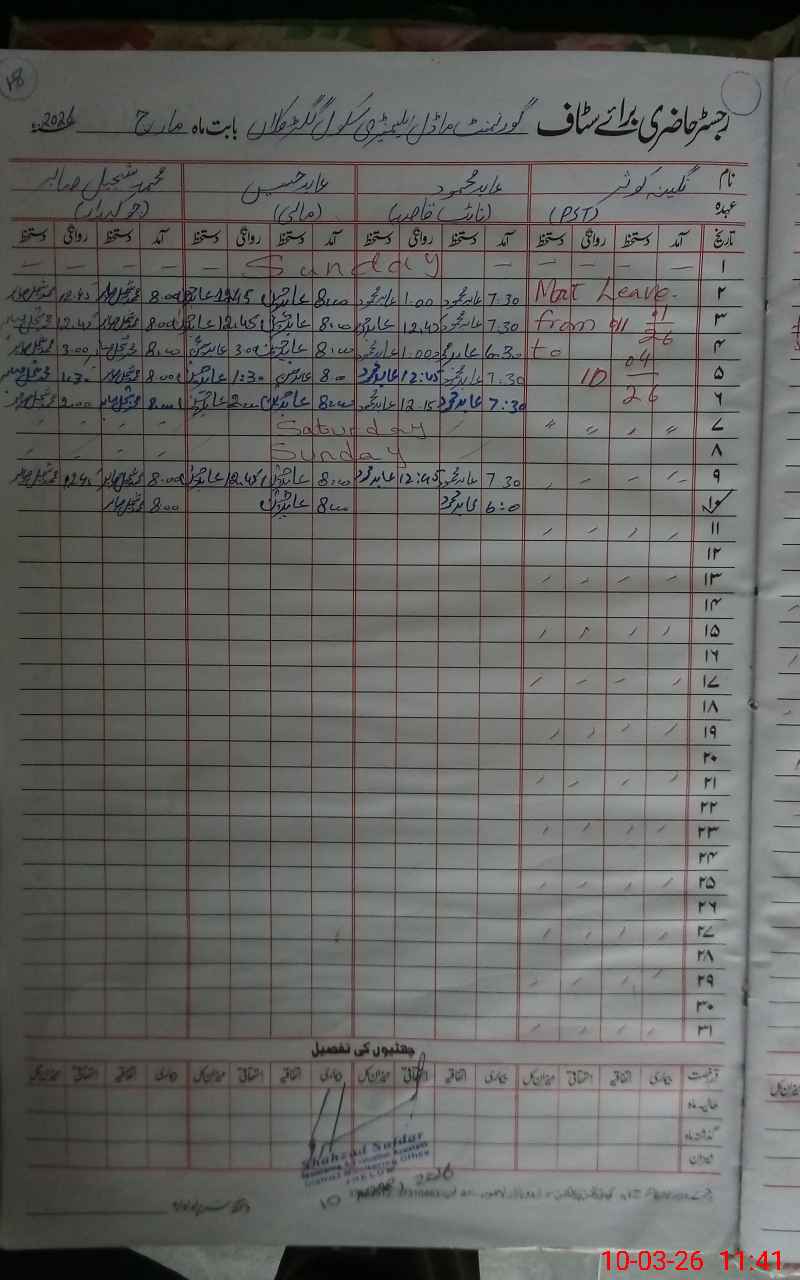 رجسٹر حاضری برائے سٹاف گورنمنٹ ماڈل ایلیمنٹری سکول بابت ماہ مارچ 2026ء
نام نگینہ کوثر عابد محمود عابد حسین محمد سجیل صابر
عہدہ (PST) (نائب قاصد) (مالی) (چوکیدار)
تاریخ آمد دستخط روانگی دستخط آمد دستخط روانگی دستخط آمد دستخط روانگی دستخط آمد دستخط روانگی دستخط
۱ Sunday
۲ Mat Leave. 7:30 عابد محمود 1:00 عابد محمود 8:00 عابد حسین 12:45 عابد حسین 8:00 12:45
۳ from 7:30 عابد محمود 12:45 عابد محمود 8:00 عابد حسین 12:45 عابد حسین 8:00 12:45
۴ to 6:30 عابد محمود 1:00 عابد محمود 8:00 عابد حسین 3:00 عابد حسین 8:00 3:00
۵ 10 04 7:30 عابد محمود 12:45 عابد محمود 8:00 عابد حسین 1:30 عابد حسین 8:00 1:30
۶ 26 7:30 عابد محمود 12:15 عابد محمود 8:00 عابد حسین 2:00 عابد حسین 8:00 2:00
۷ Saturday
۸ Sunday
۹ 7:30 عابد محمود 12:45 عابد محمود 8:00 عابد حسین 12:45 عابد حسین 8:00 12:45
۱۰ 6:0 عابد محمود 8:00 عابد حسین 8:00
۱۱
۱۲
۱۳
۱۴
۱۵
۱۶
۱۷
۱۸
۱۹
۲۰
۲۱
۲۲
۲۳
۲۴
۲۵
۲۶
۲۷
۲۸
۲۹
۳۰
۳۱
چھٹیوں کی تفصیل
قسم رخصت بیماری اتفاقیہ استحقاقی میزان کل بیماری اتفاقیہ استحقاقی میزان کل بیماری اتفاقیہ استحقاقی میزان کل بیماری اتفاقیہ استحقاقی میزان کل
حالیہ ماہ
گذشتہ ماہ
میزان
Shahzad Safdar
Monitoring & Evaluation Assistant
District Monitoring Office
JHELUM
10 2026
10-03-26 11:41